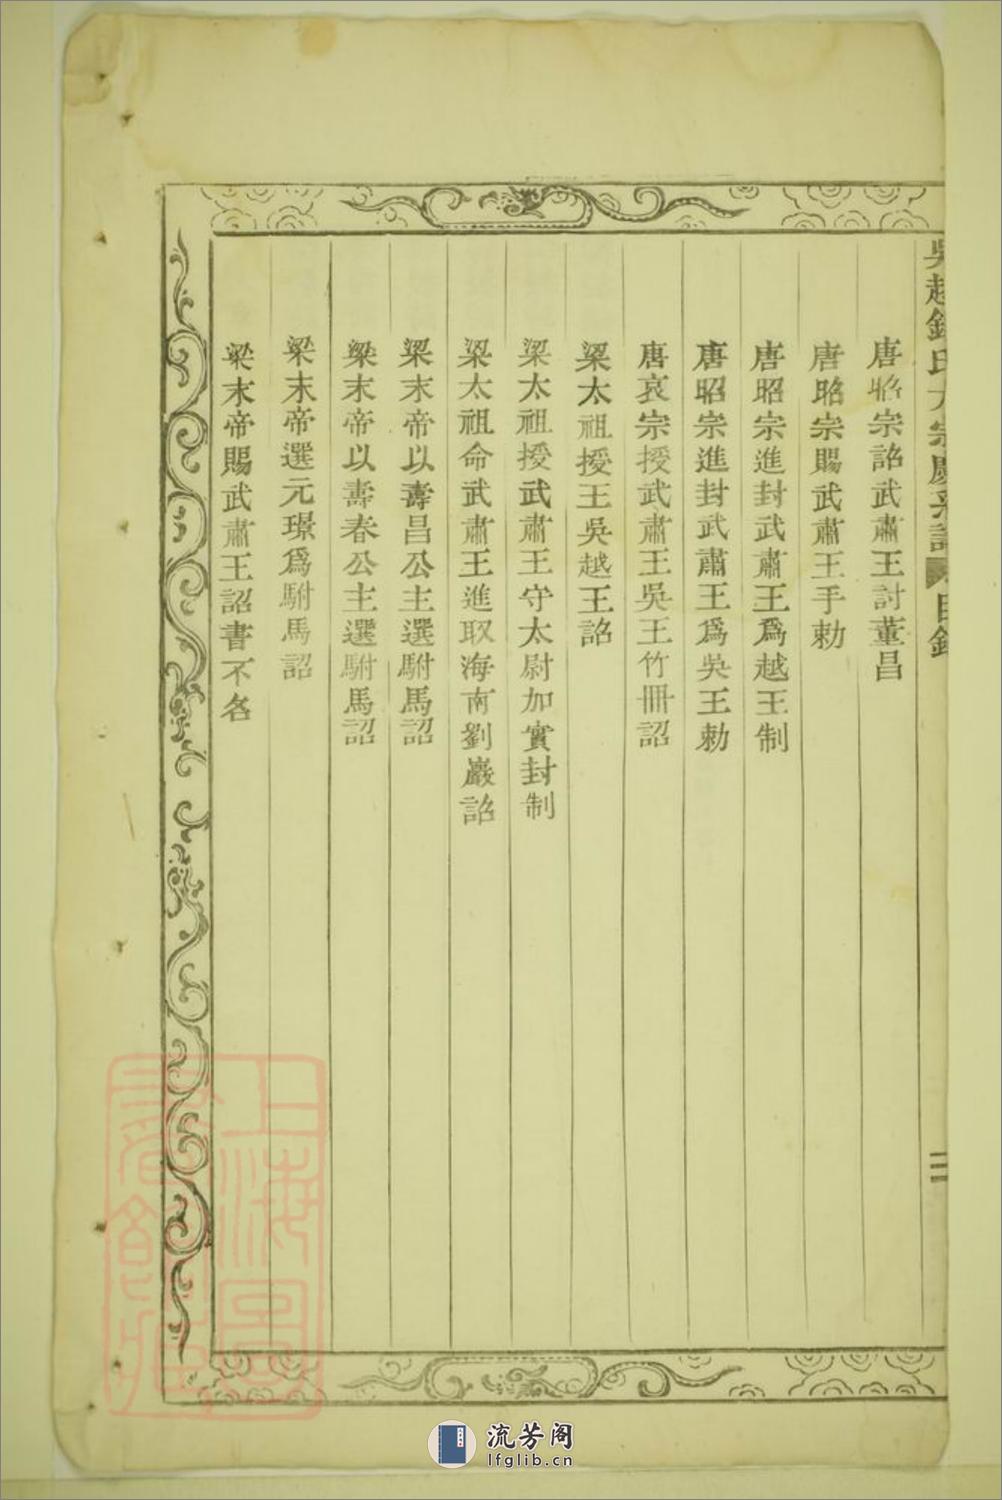 吳越錢氏大宗慶系譜 目錄 二
唐昭宗詔武肅王討董昌
唐昭宗賜武肅王手勅
唐昭宗進封武肅王爲越王制
唐昭宗進封武肅王爲吳王勅
唐哀宗授武肅王吳王竹冊詔
梁太祖授王吳越王詔
梁太祖授武肅王守太尉加實封制
梁太祖命武肅王進取海南劉巖詔
梁末帝以壽昌公主選駙馬詔
梁末帝以壽春公主選駙馬詔
梁末帝選元璟爲駙馬詔
梁末帝賜武肅王詔書不名
上海圖
書館藏
流芳阁
lfglib.cn